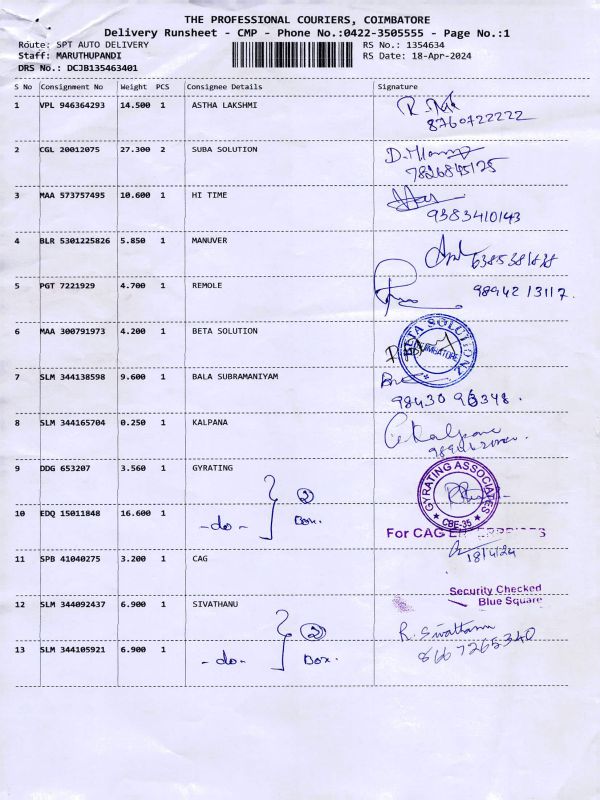 THE PROFESSIONAL COURIERS, COIMBATORE
Delivery Runsheet - CMP - Phone No.:0422-3505555 - Page No.:1
Route: SPT AUTO DELIVERY RS No.: 1354634
Staff: MARUTHUPANDI RS Date: 18-Apr-2024
DRS No.: DCJB135463401
S No Consignment No Weight PCS Consignee Details Signature
1 VPL 946364293 14.500 1 ASTHA LAKSHMI
8760722222
2 CGL 20012075 27.300 2 SUBA SOLUTION
3 MAA 573757495 10.600 1 HI TIME
9383410143
4 BLR 5301225826 5.850 1 MANUVER
5 PGT 7221929 4.700 1 REMOLE
98942 13117.
6 MAA 300791973 4.200 1 BETA SOLUTION
BETA SOLUTIONZ
COIMBATORE
7 SLM 344138598 9.600 1 BALA SUBRAMANIYAM
8 SLM 344165704 0.250 1 KALPANA
Kalpana
9 DDG 653207 3.560 1 GYRATING
GYRATING ASSOCIATES
CBE-35
10 EDQ 15011848 16.600 1
-do- } 2 Box.
For CAG ENTERPRISES
11 SPB 41040275 3.200 1 CAG
18/4/24
Security Checked
Blue Square
12 SLM 344092437 6.900 1 SIVATHANU
R. Sivathanu
8667265340
13 SLM 344105921 6.900 1
-do- } 2 Box.